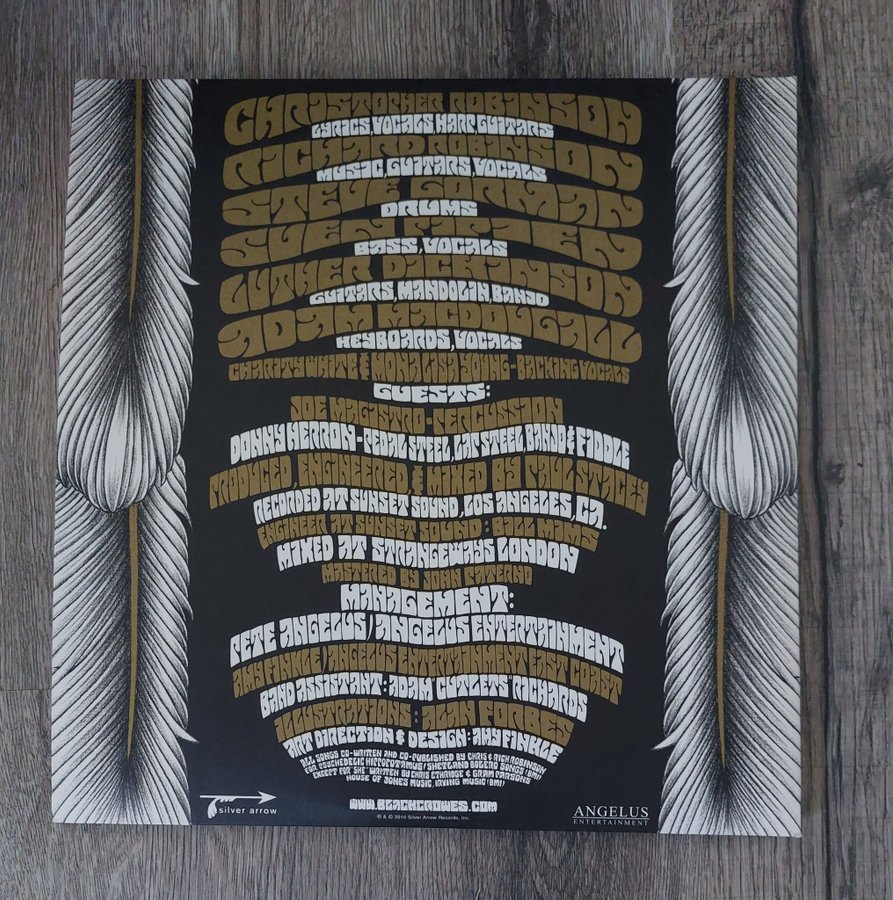 CHRISTOPHER ROBINSON
LYRICS, VOCALS, HARP, GUITARS
RICHARD ROBINSON
MUSIC, GUITARS, VOCALS
STEVE GORMAN
DRUMS
SVEN PIPIEN
BASS, VOCALS
LUTHER DICKINSON
GUITARS, MANDOLIN, BANJO
ADAM MACDOUGALL
KEYBOARDS, VOCALS
CHARITY WHITE & MONA LISA YOUNG - BACKING VOCALS
GUESTS:
JOE MAGISTRO - PERCUSSION
DONNY HERRON - PEDAL STEEL, LAP STEEL, BANJO & FIDDLE
PRODUCED, ENGINEERED, & MIXED BY PAUL STACEY
RECORDED AT SUNSET SOUND, LOS ANGELES, CA.
ENGINEER AT SUNSET SOUND: BALL MIMS
MIXED AT STRANGEWAYS LONDON
MASTERED BY JOHN PATERNO
MANAGEMENT:
PETE ANGELUS / ANGELUS ENTERTAINMENT
AMY FINKLE / ANGELUS ENTERTAINMENT EAST COAST
BAND ASSISTANT: ADAM "CUTLETS" RICHARDS
ILLUSTRATIONS: ALAN FORBES
ART DIRECTION & DESIGN: AMY FINKLE
ALL SONGS CO-WRITTEN AND CO-PUBLISHED BY CHRIS & RICH ROBINSON
FOR PSYCHEDELIC HIPPOPOTAMUS/ SHETLAND BOLERO SONGS (BMI)
EXCEPT FOR "SHE" WRITTEN BY CHRIS ETHRIDGE & GRAM PARSONS
HOUSE OF JONES MUSIC, IRVING MUSIC (BMI)
WWW.BLACKCROWES.COM
silver arrow
℗ & © 2010 Silver Arrow Records, Inc.
ANGELUS
ENTERTAINMENT